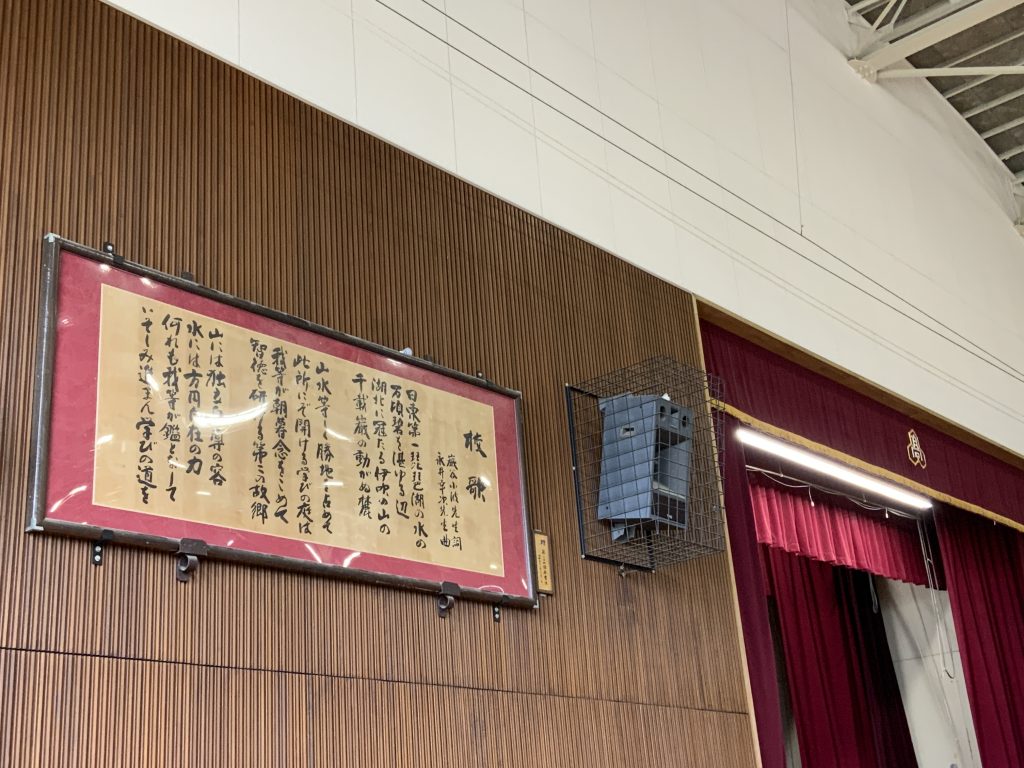 校歌
巌谷小波先生 詞
永井幸次先生 曲
日東第一琵琶湖の水の
万頃碧を湛ゆる辺
湖北に冠たる伊吹の山の
千載巌の動かぬ麓
山水等しく勝地を占めて
此所にぞ開ける学びの庭は
我等が朝暮念をこめて
智徳を研する第二の故郷
山には独立自尊の容
水には方円自在の力
何れも我等が鑑として
いそしみ進まん学びの道を
高